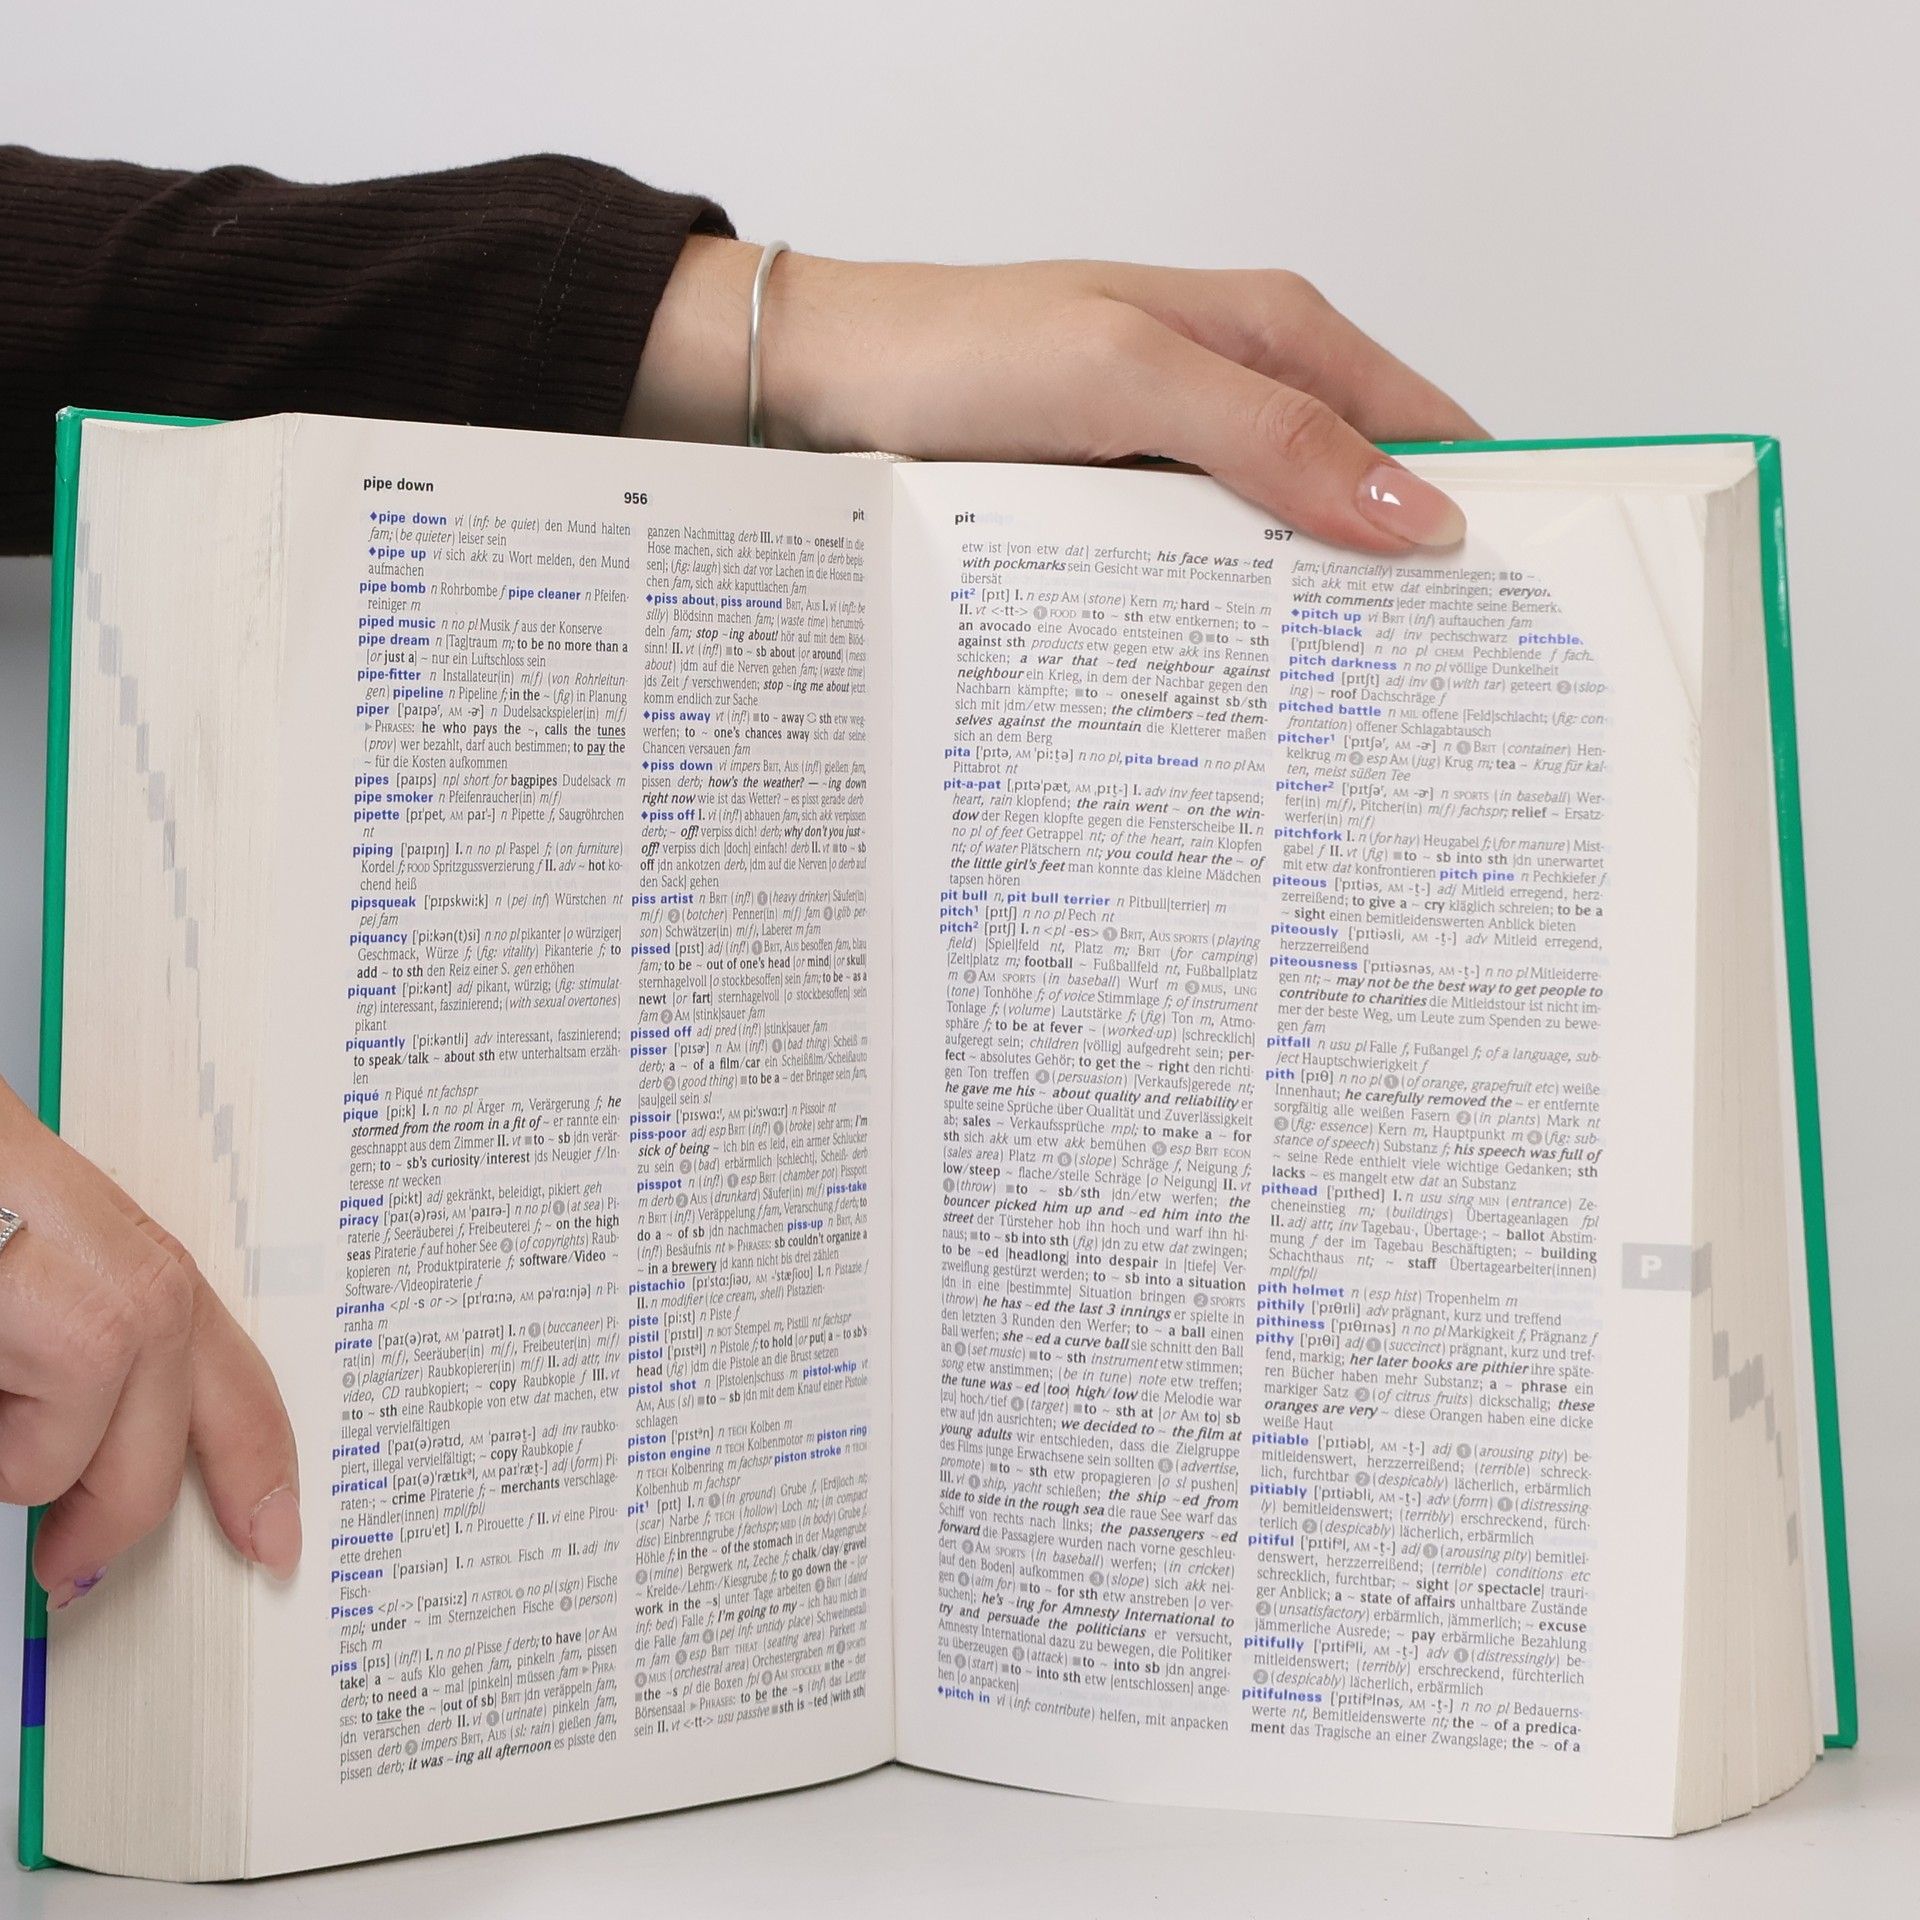 pipe down
956
pit
♦pipe down vi (inf: be quiet) den Mund halten
fam; (be quieter) leiser sein
♦pipe up vi sich akk zu Wort melden, den Mund
aufmachen
pipe bomb n Rohrbombe f pipe cleaner n Pfeifen-
reiniger m
piped music n no pl Musik f aus der Konserve
pipe dream n [Tag]traum m; to be no more than a
[or just a] ~ nur ein Luftschloss sein
pipe-fitter n Installateur(in) m(f) (von Rohrleitun-
gen) pipeline n Pipeline f; in the ~ (fig) in Planung
piper ['paɪpəʳ, AM -ɚ] n Dudelsackspieler(in) m(f)
▶ PHRASES: he who pays the ~, calls the tunes
(prov) wer bezahlt, darf auch bestimmen; to pay the
~ für die Kosten aufkommen
pipes [paɪps] npl short for bagpipes Dudelsack m
pipe smoker n Pfeifenraucher(in) m(f)
pipette [pɪ'pet, AM paɪ'-] n Pipette f, Saugröhrchen
nt
piping ['paɪpɪŋ] I. n no pl Paspel f; (on furniture)
Kordel f; FOOD Spritzgussverzierung f II. adv ~ hot ko-
chend heiß
pipsqueak ['pɪpskwi:k] n (pej inf) Würstchen nt
pej fam
piquancy ['pi:kən(t)si] n no pl pikanter [o würziger]
Geschmack, Würze f; (fig: vitality) Pikanterie f; to
add ~ to sth den Reiz einer S. gen erhöhen
piquant ['pi:kənt] adj pikant, würzig; (fig: stimulat-
ing) interessant, faszinierend; (with sexual overtones)
pikant
piquantly ['pi:kəntli] adv interessant, faszinierend;
to speak/talk ~ about sth etw unterhaltsam erzäh-
len
piqué n Piqué nt fachspr
pique [pi:k] I. n no pl Ärger m, Verärgerung f; he
stormed from the room in a fit of ~ er rannte ein-
geschnappt aus dem Zimmer II. vt ■to ~ sb jdn verär-
gern; to ~ sb's curiosity/interest jds Neugier f/In-
teresse nt wecken
piqued [pi:kt] adj gekränkt, beleidigt, pikiert geh
piracy ['paɪ(ə)rəsi, AM 'paɪrə-] n no pl ① (at sea) Pi-
raterie f, Seeräuberei f, Freibeuterei f; ~ on the high
seas Piraterie f auf hoher See ② (of copyrights) Raub-
kopieren nt, Produktpiraterie f; software/Video ~
Software-/Videopiraterie f
piranha <pl -s or -> [pɪ'rɑ:nə, AM pə'rɑ:njə] n Pi-
ranha m
pirate ['paɪ(ə)rət, AM 'paɪrət] I. n ① (buccaneer) Pi-
rat(in) m(f), Seeräuber(in) m(f), Freibeuter(in) m(f)
② (plagiarizer) Raubkopierer(in) m(f) II. adj attr, inv
video, CD raubkopiert; ~ copy Raubkopie f III. vt
■to ~ sth eine Raubkopie von etw dat machen, etw
illegal vervielfältigen
pirated ['paɪ(ə)rətɪd, AM 'paɪrət̬-] adj inv raubko-
piert, illegal vervielfältigt; ~ copy Raubkopie f
piratical [paɪ(ə)'rætɪkᵊl, AM paɪ'ræt̬-] adj (form) Pi-
raten-; ~ crime Piraterie f; ~ merchants verschlage-
ne Händler(innen) mpl(fpl)
pirouette [ˌpɪru'et] I. n Pirouette f II. vi eine Pirou-
ette drehen
Piscean ['paɪsiən] I. n ASTROL Fisch m II. adj inv
Fisch-
Pisces <pl -> ['paɪsi:z] n ASTROL ① no pl (sign) Fische
mpl; under ~ im Sternzeichen Fische ② (person)
Fisch m
piss [pɪs] (inf!) I. n no pl Pisse f derb; to have [or AM
take] a ~ aufs Klo gehen fam, pinkeln fam, pissen
derb; to need a ~ mal [pinkeln] müssen fam ▶ PHRA-
SES: to take the ~ [out of sb] BRIT jdn veräppeln fam,
jdn verarschen derb II. vi ① (urinate) pinkeln fam,
pissen derb ② impers BRIT, AUS (sl: rain) gießen fam,
pissen derb; it was ~ing all afternoon es pisste den
ganzen Nachmittag derb III. vt ■to ~ oneself in die
Hose machen, sich akk bepinkeln fam [o derb bepis-
sen]; (fig: laugh) sich dat vor Lachen in die Hosen ma-
chen fam, sich akk kaputtlachen fam
♦piss about, piss around BRIT, AUS I. vi (inf!: be
silly) Blödsinn machen fam; (waste time) herumtrö-
deln fam; stop ~ing about! hör auf mit dem Blöd-
sinn! II. vt (inf!) ■to ~ sb about [or around] (mess
about) jdm auf die Nerven gehen fam; (waste time)
jds Zeit f verschwenden; stop ~ing me about jetzt
komm endlich zur Sache
♦piss away vt (inf!) ■to ~ away ↻ sth etw weg-
werfen; to ~ one's chances away sich dat seine
Chancen versauen fam
♦piss down vi impers BRIT, AUS (inf!) gießen fam,
pissen derb; how's the weather? — ~ing down
right now wie ist das Wetter? – es pisst gerade derb
♦piss off I. vi (inf!) abhauen fam, sich akk verpissen
derb; ~ off! verpiss dich! derb; why don't you just ~
off! verpiss dich [doch] einfach! derb II. vt ■to ~ sb
off jdn ankotzen derb, jdm auf die Nerven [o derb auf
den Sack] gehen
piss artist n BRIT (inf!) ① (heavy drinker) Säufer(in)
m(f) ② (botcher) Penner(in) m(f) fam ③ (glib per-
son) Schwätzer(in) m(f), Laberer m fam
pissed [pɪst] adj (inf!) ① BRIT, AUS besoffen fam, blau
fam; to be ~ out of one's head [or mind] [or skull]
sternhagelvoll [o stockbesoffen] sein fam; to be ~ as a
newt [or fart] sternhagelvoll [o stockbesoffen] sein
fam ② AM [stink]sauer fam
pissed off adj pred (inf!) [stink]sauer fam
pisser ['pɪsɚ] n AM (inf!) ① (bad thing) Scheiß m
derb; a ~ of a film/car ein Scheißfilm/Scheißauto
derb ② (good thing) ■to be a ~ der Bringer sein fam,
[sau]geil sein sl
pissoir ['pɪswɑ:ʳ, AM pi:'swɑ:r] n Pissoir nt
piss-poor adj esp BRIT (inf!) ① (broke) sehr arm; I'm
sick of being ~ ich bin es leid, ein armer Schlucker
zu sein ② (bad) erbärmlich [schlecht], Scheiß- derb
pisspot n (inf!) ① esp BRIT (chamber pot) Pisspott
m derb ② AUS (drunkard) Säufer(in) m(f) piss-take
n BRIT (inf!) Veräppelung f fam, Verarschung f derb; to
do a ~ of sb jdn nachmachen piss-up n BRIT, AUS
(inf!) Besäufnis nt ▶ PHRASES: sb couldn't organize a
~ in a brewery jd kann nicht bis drei zählen
pistachio [pɪ'stɑ:ʃiəu, AM -'stæʃioʊ] I. n Pistazie f
II. n modifier (ice cream, shell) Pistazien-
piste [pi:st] n Piste f
pistil ['pɪstɪl] n BOT Stempel m, Pistill nt fachspr
pistol ['pɪstᵊl] n Pistole f; to hold [or put] a ~ to sb's
head (fig) jdm die Pistole an die Brust setzen
pistol shot n [Pistolen]schuss m pistol-whip vt
AM, AUS (sl) ■to ~ sb jdn mit dem Knauf einer Pistole
schlagen
piston ['pɪstᵊn] n TECH Kolben m
piston engine n TECH Kolbenmotor m piston ring
n TECH Kolbenring m fachspr piston stroke n TECH
Kolbenhub m fachspr
pit¹ [pɪt] I. n ① (in ground) Grube f, [Erd]loch nt;
(scar) Narbe f; TECH (hollow) Loch nt; (in compact
disc) Einbrenngrube f fachspr; MED (in body) Grube f,
Höhle f; in the ~ of the stomach in der Magengrube
② (mine) Bergwerk nt, Zeche f; chalk/clay/gravel
~ Kreide-/Lehm-/Kiesgrube f; to go down the ~ [or
work in the ~s] unter Tage arbeiten ③ BRIT (dated
inf: bed) Falle f; I'm going to my ~ ich hau mich in
die Falle fam ④ (pej inf: untidy place) Schweinestall
m fam ⑤ esp BRIT THEAT (seating area) Parkett nt
⑥ MUS (orchestral area) Orchestergraben m ⑦ SPORTS
■the ~s pl die Boxen fpl ⑧ AM STOCKEX ■the ~ der
Börsensaal ▶ PHRASES: to be the ~s (inf) das Letzte
sein II. vt <-tt-> usu passive ■sth is ~ted [with sth]
pit
957
etw ist [von etw dat] zerfurcht; his face was ~ted
with pockmarks sein Gesicht war mit Pockennarben
übersät
pit² [pɪt] I. n esp AM (stone) Kern m; hard ~ Stein m
II. vt <-tt-> ① FOOD ■to ~ sth etw entkernen; to ~
an avocado eine Avocado entsteinen ② ■to ~ sth
against sth products etw gegen etw akk ins Rennen
schicken; a war that ~ted neighbour against
neighbour ein Krieg, in dem der Nachbar gegen den
Nachbarn kämpfte; ■to ~ oneself against sb/sth
sich mit jdm/etw messen; the climbers ~ted them-
selves against the mountain die Kletterer maßen
sich an dem Berg
pita ['pɪtə, AM 'pi:t̬ə] n no pl, pita bread n no pl AM
Pittabrot nt
pit-a-pat [ˌpɪtə'pæt, AM ˌpɪt̬-] I. adv inv feet tapsend;
heart, rain klopfend; the rain went ~ on the win-
dow der Regen klopfte gegen die Fensterscheibe II. n
no pl of feet Getrappel nt; of the heart, rain Klopfen
nt; of water Plätschern nt; you could hear the ~ of
the little girl's feet man konnte das kleine Mädchen
tapsen hören
pit bull n, pit bull terrier n Pitbull[terrier] m
pitch¹ [pɪtʃ] n no pl Pech nt
pitch² [pɪtʃ] I. n <pl -es> ① BRIT, AUS SPORTS (playing
field) [Spiel]feld nt, Platz m; BRIT (for camping)
[Zelt]platz m; football ~ Fußballfeld nt, Fußballplatz
m ② AM SPORTS (in baseball) Wurf m ③ MUS, LING
(tone) Tonhöhe f; of voice Stimmlage f; of instrument
Tonlage f; (volume) Lautstärke f; (fig) Ton m, Atmo-
sphäre f; to be at fever ~ (worked-up) [schrecklich]
aufgeregt sein; children [völlig] aufgedreht sein; per-
fect ~ absolutes Gehör; to get the ~ right den richti-
gen Ton treffen ④ (persuasion) [Verkaufs]gerede nt;
he gave me his ~ about quality and reliability er
spulte seine Sprüche über Qualität und Zuverlässigkeit
ab; sales ~ Verkaufssprüche mpl; to make a ~ for
sth sich akk um etw akk bemühen ⑤ esp BRIT ECON
(sales area) Platz m ⑥ (slope) Schräge f, Neigung f;
low/steep ~ flache/steile Schräge [o Neigung] II. vt
① (throw) ■to ~ sb/sth jdn/etw werfen; the
bouncer picked him up and ~ed him into the
street der Türsteher hob ihn hoch und warf ihn hi-
naus; ■to ~ sb into sth (fig) jdn zu etw dat zwingen;
to be ~ed [headlong] into despair in [tiefe] Ver-
zweiflung gestürzt werden; to ~ sb into a situation
jdn in eine [bestimmte] Situation bringen ② SPORTS
(throw) he has ~ed the last 3 innings er spielte in
den letzten 3 Runden den Werfer; to ~ a ball einen
Ball werfen; she ~ed a curve ball sie schnitt den Ball
an ③ (set music) ■to ~ sth instrument etw stimmen;
song etw anstimmen; (be in tune) note etw treffen;
the tune was ~ed [too] high/low die Melodie war
[zu] hoch/tief ④ (target) ■to ~ sth at [or AM to] sb
etw auf jdn ausrichten; we decided to ~ the film at
young adults wir entschieden, dass die Zielgruppe
des Films junge Erwachsene sein sollten ⑤ (advertise,
promote) ■to ~ sth etw propagieren [o sl pushen]
III. vi ① ship, yacht schießen; the ship ~ed from
side to side in the rough sea die raue See warf das
Schiff von rechts nach links; the passengers ~ed
forward die Passagiere wurden nach vorne geschleu-
dert ② AM SPORTS (in baseball) werfen; (in cricket)
[auf den Boden] aufkommen ③ (slope) sich akk nei-
gen ④ (aim for) ■to ~ for sth etw anstreben [o ver-
suchen]; he's ~ing for Amnesty International to
try and persuade the politicians er versucht,
Amnesty International dazu zu bewegen, die Politiker
zu überzeugen ⑤ (attack) ■to ~ into sb jdn angrei-
fen ⑥ (start) ■to ~ into sth etw [entschlossen] ange-
hen [o anpacken]
♦pitch in vi (inf: contribute) helfen, mit anpacken
fam; (financially) zusammenlegen; ■to ~
sich akk mit etw dat einbringen;
with comments jeder machte seine
♦pitch up vi BRIT (inf) auftauchen fam
pitch-black adj inv pechschwarz
['pɪtʃblend] n no pl CHEM Pechblende f
pitch darkness n no pl völlige Dunkelheit
pitched [pɪtʃt] adj inv ① (with tar) geteert ② (slop-
ing) ~ roof Dachschräge f
pitched battle n MIL offene [Feld]schlacht; (fig: con-
frontation) offener Schlagabtausch
pitcher¹ ['pɪtʃəʳ, AM -ɚ] n ① BRIT (container) Hen-
kelkrug m ② esp AM (jug) Krug m; tea ~ Krug für kal-
ten, meist süßen Tee
pitcher² ['pɪtʃəʳ, AM -ɚ] n SPORTS (in baseball) Wer-
fer(in) m(f), Pitcher(in) m(f) fachspr; relief ~ Ersatz-
werfer(in) m(f)
pitchfork I. n (for hay) Heugabel f; (for manure) Mist-
gabel f II. vt (fig) ■to ~ sb into sth jdn unerwartet
mit etw dat konfrontieren pitch pine n Pechkiefer f
piteous ['pɪtiəs, AM -t̬-] adj Mitleid erregend, herz-
zerreißend; to give a ~ cry kläglich schreien; to be a
~ sight einen bemitleidenswerten Anblick bieten
piteously ['pɪtiəsli, AM -t̬-] adv Mitleid erregend,
herzzerreißend
piteousness ['pɪtiəsnəs, AM -t̬-] n no pl Mitleiderre-
gen nt; ~ may not be the best way to get people to
contribute to charities die Mitleidstour ist nicht im-
mer der beste Weg, um Leute zum Spenden zu bewe-
gen fam
pitfall n usu pl Falle f, Fußangel f; of a language, sub-
ject Hauptschwierigkeit f
pith [pɪθ] n no pl ① (of orange, grapefruit etc) weiße
Innenhaut; he carefully removed the ~ er entfernte
sorgfältig alle weißen Fasern ② (in plants) Mark nt
③ (fig: essence) Kern m, Hauptpunkt m ④ (fig: sub-
stance of speech) Substanz f; his speech was full of
~ seine Rede enthielt viele wichtige Gedanken; sth
lacks ~ es mangelt etw dat an Substanz
pithead ['pɪthed] I. n usu sing MIN (entrance) Ze-
cheneinstieg m; (buildings) Übertageanlagen fpl
II. adj attr, inv Tagebau-, Übertage-; ~ ballot Abstim-
mung f der im Tagebau Beschäftigten; ~ building
Schachthaus nt; ~ staff Übertagearbeiter(innen)
mpl(fpl)
pith helmet n (esp hist) Tropenhelm m
pithily ['pɪθɪli] adv prägnant, kurz und treffend
pithiness ['pɪθɪnəs] n no pl Markigkeit f, Prägnanz f
pithy ['pɪθi] adj ① (succinct) prägnant, kurz und tref-
fend, markig; her later books are pithier ihre späte-
ren Bücher haben mehr Substanz; a ~ phrase ein
markiger Satz ② (of citrus fruits) dickschalig; these
oranges are very ~ diese Orangen haben eine dicke
weiße Haut
pitiable ['pɪtiəbl̩, AM -t̬-] adj ① (arousing pity) be-
mitleidenswert, herzzerreißend; (terrible) schreck-
lich, furchtbar ② (despicably) lächerlich, erbärmlich
pitiably ['pɪtiəbli, AM -t̬-] adv (form) ① (distressing-
ly) bemitleidenswert; (terribly) erschreckend, fürch-
terlich ② (despicably) lächerlich, erbärmlich
pitiful ['pɪtifᵊl, AM -t̬-] adj ① (arousing pity) bemitlei-
denswert, herzzerreißend; (terrible) conditions etc
schrecklich, furchtbar; ~ sight [or spectacle] trauri-
ger Anblick; a ~ state of affairs unhaltbare Zustände
② (unsatisfactory) erbärmlich, jämmerlich; ~ excuse
jämmerliche Ausrede; ~ pay erbärmliche Bezahlung
pitifully ['pɪtifᵊli, AM -t̬-] adv ① (distressingly) be-
mitleidenswert; (terribly) erschreckend, fürchterlich
② (despicably) lächerlich, erbärmlich
pitifulness ['pɪtifᵊlnəs, AM -t̬-] n no pl Bedauerns-
werte nt, Bemitleidenswerte nt; the ~ of a predica-
ment das Tragische an einer Zwangslage; the ~ of a
P